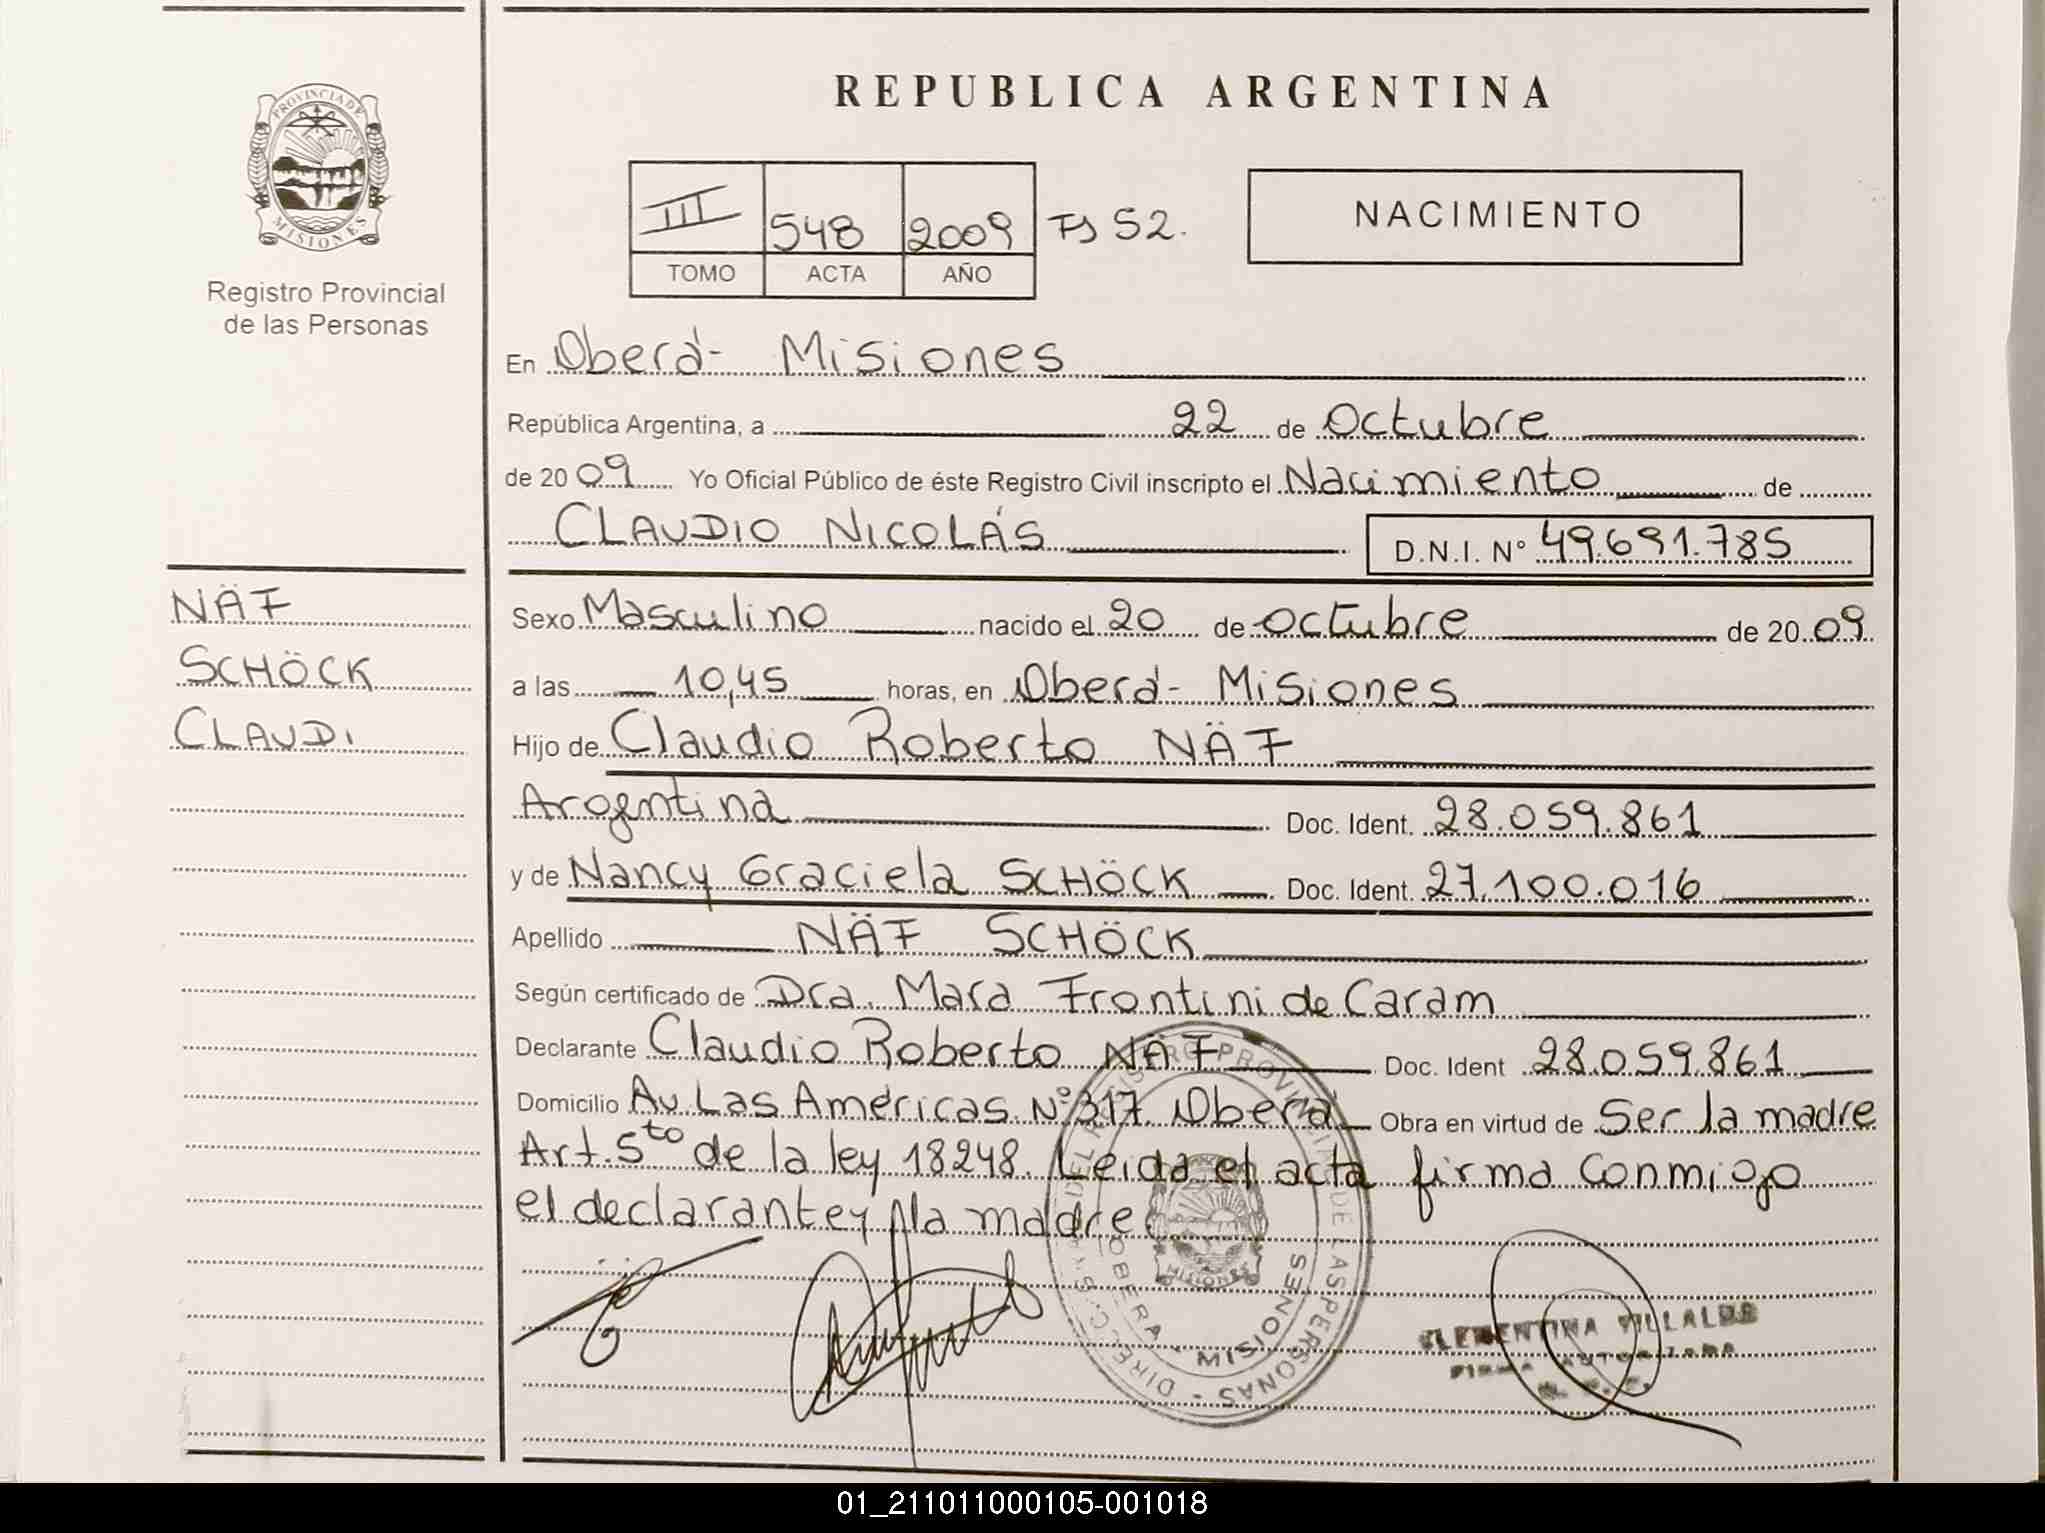 REPUBLICA ARGENTINA
PROVINCIA DE
MISIONES
Registro Provincial
de las Personas
III 548 2009 Fs 52.
TOMO ACTA AÑO
NACIMIENTO
En Oberá- Misiones
República Argentina, a 22 de Octubre
de 20 09 Yo Oficial Público de éste Registro Civil inscripto el Nacimiento de
CLAUDIO NICOLÁS D.N.I. N° 49.691.785
NÄF
SCHÖCK
CLAUDI
Sexo Masculino nacido el 20 de Octubre de 20 09
a las 10,45 horas, en Oberá- Misiones
Hijo de Claudio Roberto NÄF
Argentina Doc. Ident. 28.059.861
y de Nancy Graciela SCHÖCK Doc. Ident. 27.100.016
Apellido NÄF SCHÖCK
Según certificado de Dra. Mara Frontini de Caram
Declarante Claudio Roberto NÄF Doc. Ident 28.059.861
Domicilio Av. Las Américas N° 317. Oberá Obra en virtud de Ser la madre
Art. 5to de la ley 18248. Leida el acta firma conmigo
el declarante y la madre
DIRECC. DEL REGISTRO PROVINCIAL DE LAS PERSONAS -
OBERA - MISIONES
MISIONES
CLEMENTINA VILLALBA
FIRMA AUTORIZADA
01_211011000105-001018